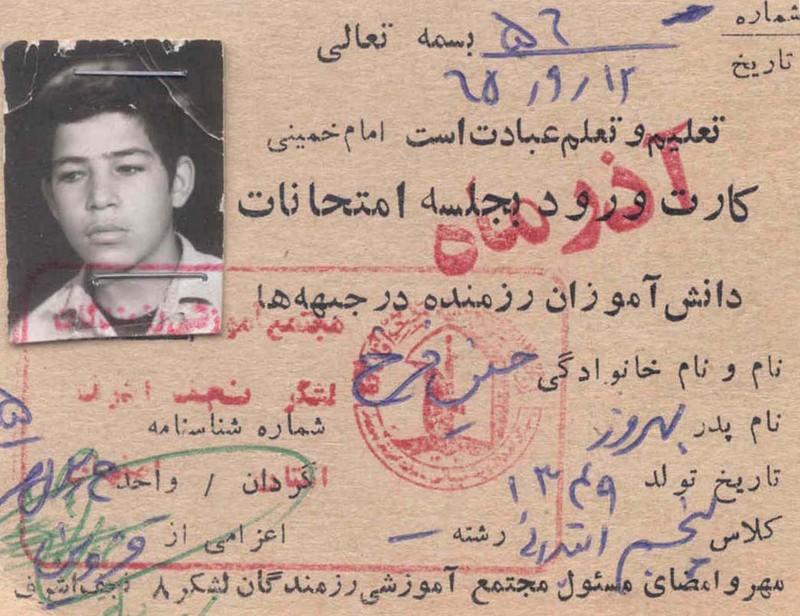 شماره ۵۶
بسمه تعالی
تاریخ ۶۵/۹/۱۲
تعلیم و تعلم عبادت است امام خمینی
کارت ورود بجلسه امتحانات
آذر ماه
دانش آموزان رزمنده در جبهه‌ها
مجتمع آموزشی رزمندگان
نام و نام خانوادگی حسن فرخ
لشگر نجف اشرف
نام پدر بهروز شماره شناسنامه
تاریخ تولد ۱۳۴۹ گردان / واحد
کلاس پنجم ابتدائی رشته — اعزامی از
مهر و امضای مسئول مجتمع آموزشی رزمندگان لشکر ۸ نجف اشرف